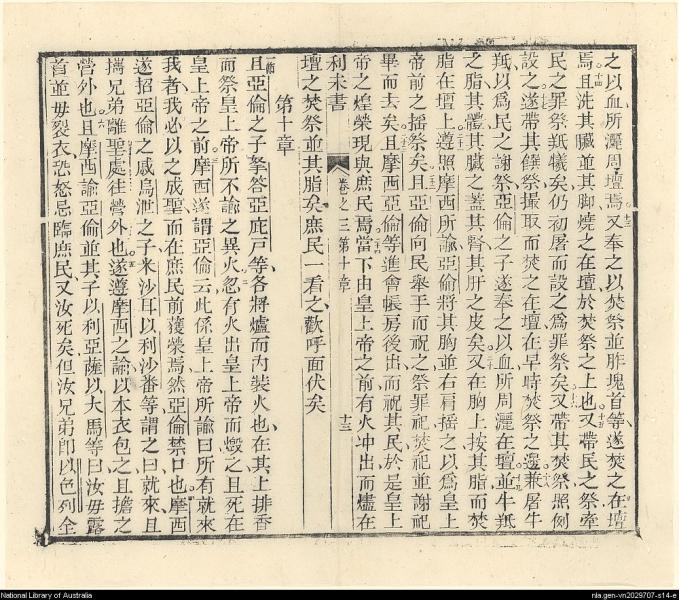 之以血所灑周壇焉又奉之以焚祭並胙塊首等遂焚之在壇
焉且洗其臟並其脚燒之在壇於焚祭之上也又帶民之祭牽
民之罪祭羝犧矣仍初屠而設之爲罪祭矣又帶其焚祭照例
設之遂帶其饌祭撮取而焚之在壇在早時焚祭之邊兼屠牛
羝以爲民之謝祭亞倫之子遂奉之以血所周灑在壇並牛羝
之脂其體其臟之蓋其腎其肝之皮矣又在胸上按其脂而焚
脂在壇上遵照摩西所諭亞倫將其胸並右肩搖之以爲皇上
帝前之搖祭矣且亞倫向民舉手而祝之祭罪祀焚祀並謝祀
畢而去矣且摩西亞倫等進會帳房後出而祝其民於是皇上
帝之煌榮現與庶民焉當下由皇上帝之前有火冲出而燼在
利未書 卷之三第十章 十三
壇之焚祭並其脂矣庶民一看之歡呼面伏矣
第十章
一節 且亞倫之子拏答亞庇戶等各將爐而內裝火也在其上排香
而祭皇上帝所不諭之異火忽有火出皇上帝而燬之且死在
皇上帝之前摩西遂謂亞倫云此係皇上帝所諭曰所有就來
我者我必以之成聖而在庶民前獲榮焉然亞倫禁口也摩西
遂招亞倫之戚烏泄之子米沙耳以利沙番等謂之曰就來且
擕兄弟離聖處往營外也遂遵摩西之諭以本衣包之且擔之
營外也且摩西諭亞倫並其子以利亞薩以大馬等曰汝毋露
首並毋裂衣恐怒忌臨庶民又汝死矣但汝兄弟卽以色列全
National Library of Australia
nla.gen-vn2029707-s14-e